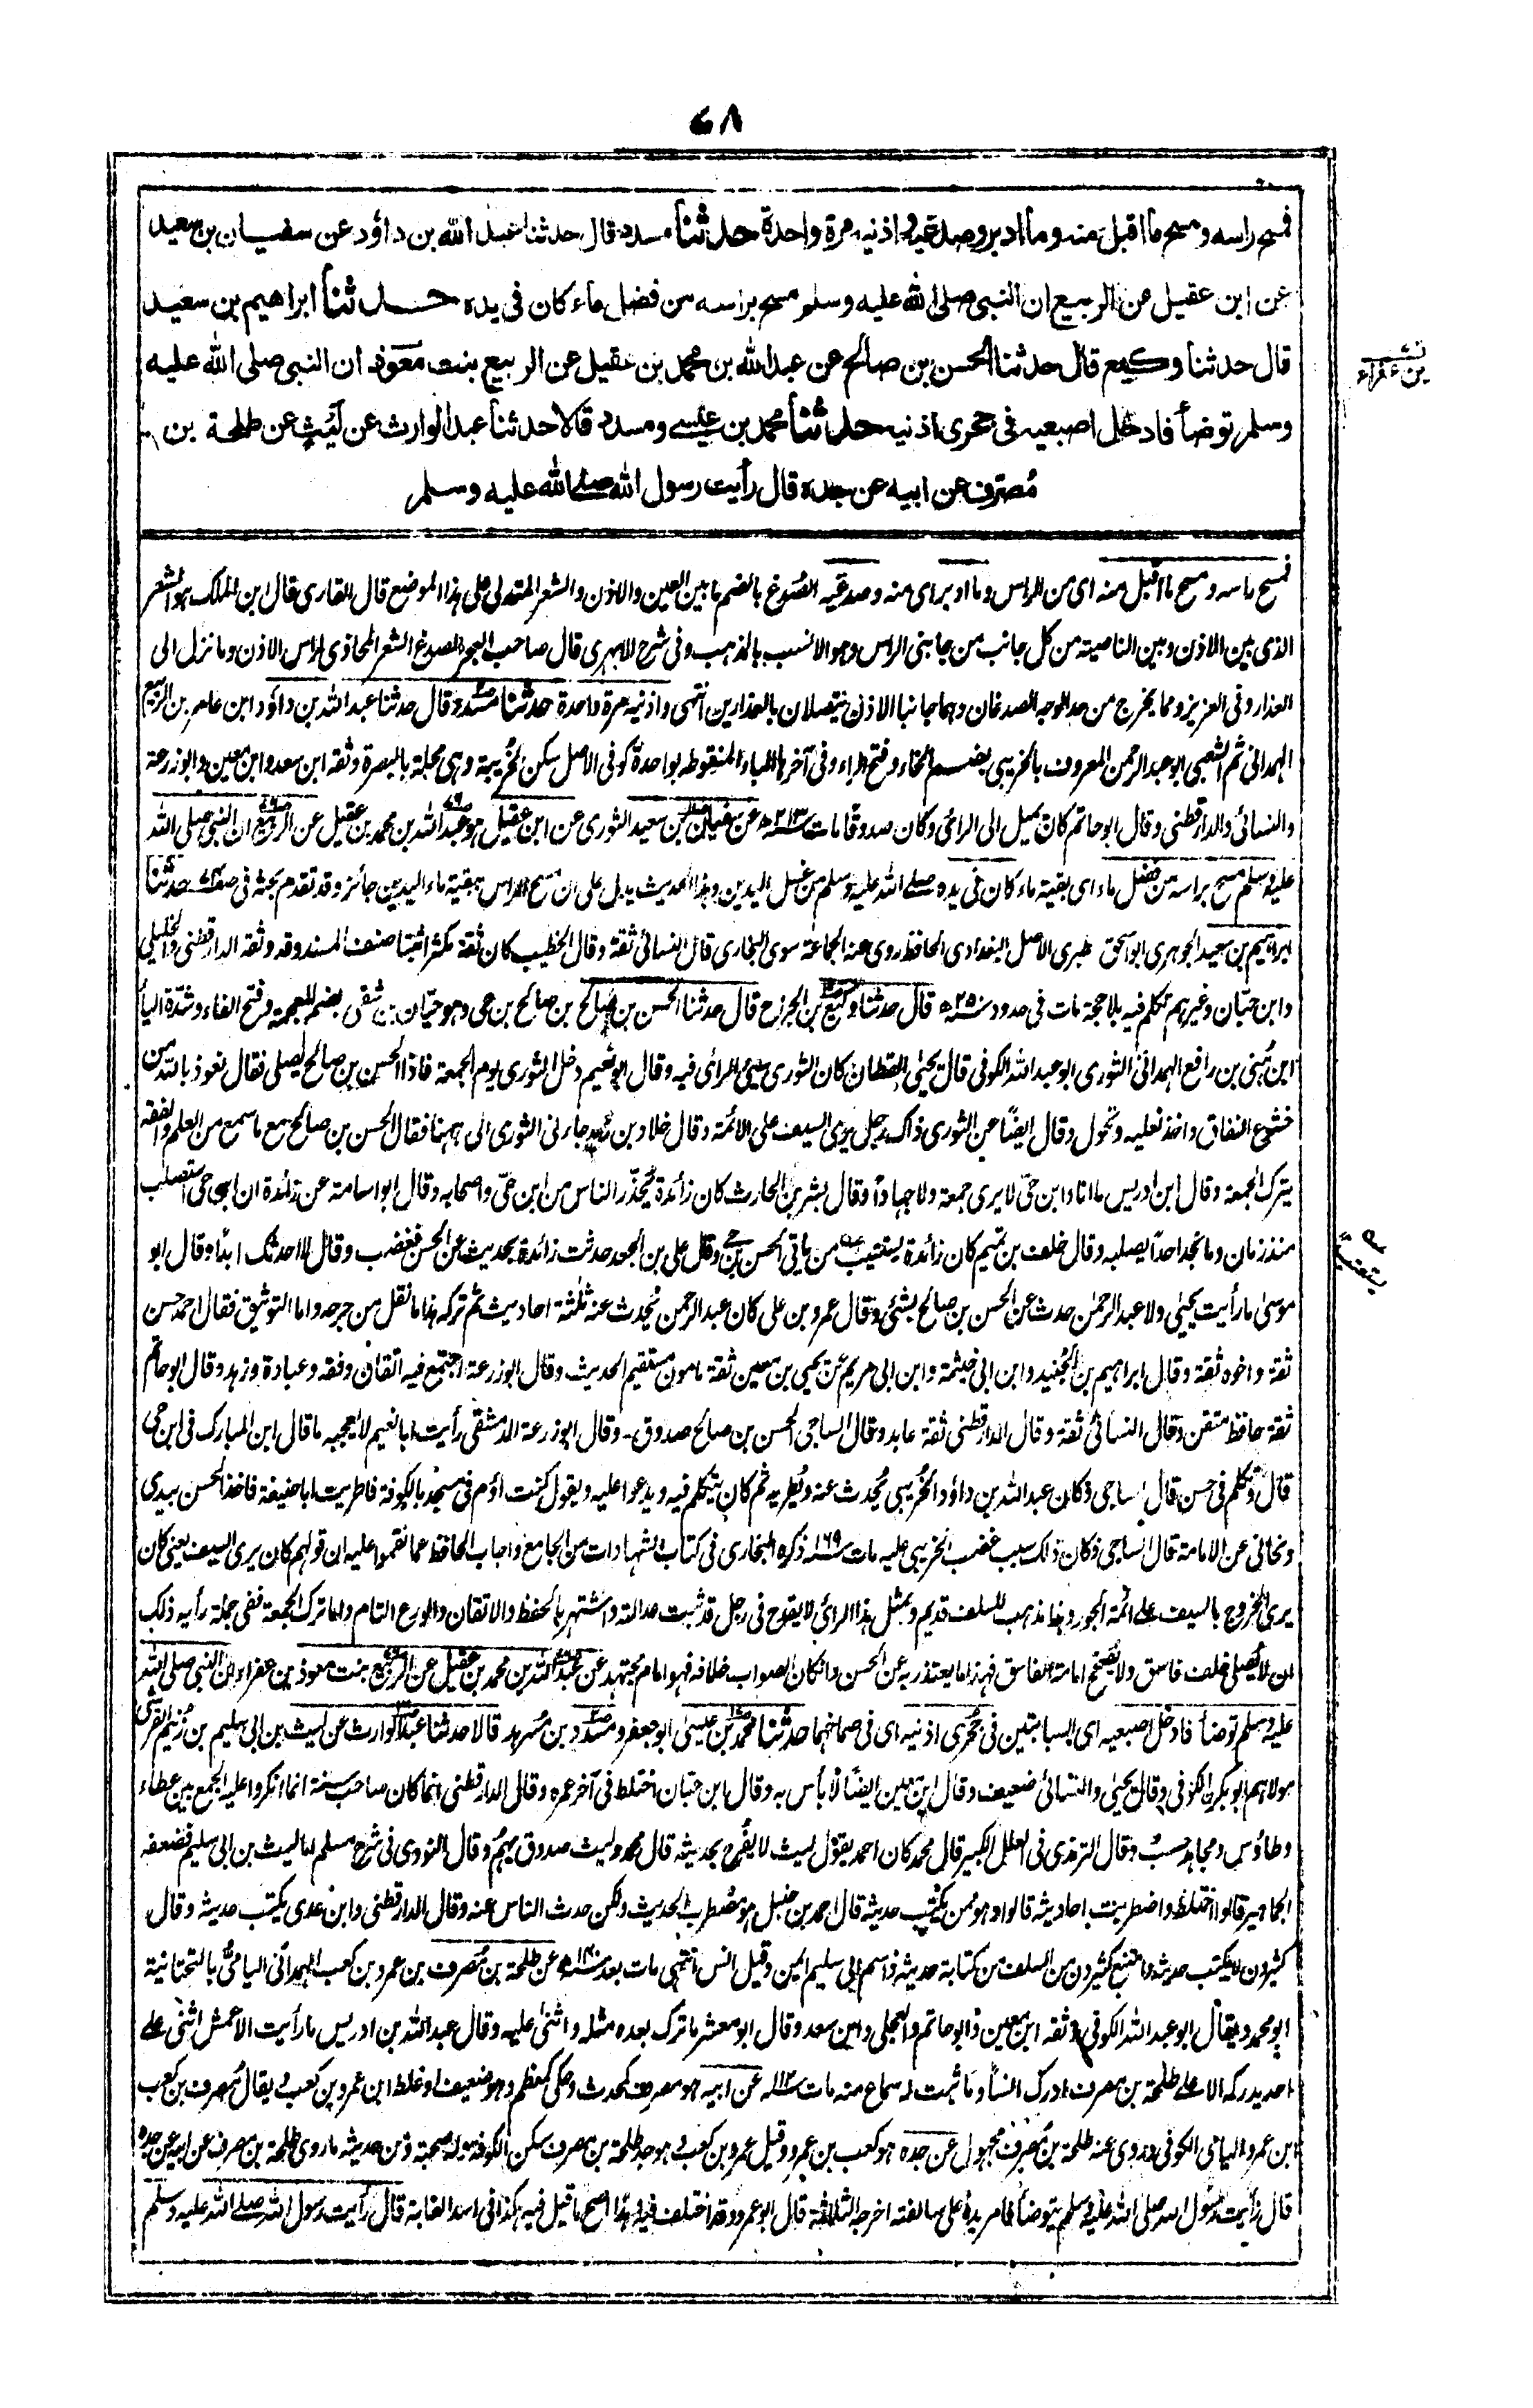 ٦٨
فمسح راسه ومسح ما اقبل منه وما ادبر وصدغيه واذنيه مرة واحدة حدثنا مسدد قال حدثنا عبد الله بن داؤد عن سفيان بن سعيد
عن ابن عقيل عن الربيع ان النبي صلى الله عليه وسلم مسح براسه من فضل ماء كان فى يده حدثنا ابراهيم بن سعيد
قال حدثنا وكيع قال حدثنا الحسن بن صالح عن عبد الله بن محمد بن عقيل عن الربيع بنت معوذ ان النبي صلى الله عليه
بن عفراء
وسلم توضأ فادخل اصبعيه فى حجرى اذنيه حدثنا محمد بن عيسى ومسدد قالا حدثنا عبد الوارث عن ليث عن طلحة بن
مصرف عن ابيه عن جده قال رأيت رسول الله صلى الله عليه وسلم
فمسح راسه ومسح ما اقبل منه اى من الراس وما ادبر اى منه وصدغيه الصدغ بالضم ما بين العين والاذن والشعر المتدلى على هذا الموضع قال القارى قال ابن الملك هو الشعر
الذى بين الاذن وبين الناصية من كل جانب من جانبى الراس وهو الانسب بالمذهب وفى شرح الابهرى قال صاحب البحر الصدغ الشعر المحاذى لراس الاذن وما نزل الى
العذار وفى العزيز ومما يخرج من حد الوجه الصدغان وهما جانبا الاذن يتصلان بالعذارين انتهى واذنيه مرة واحدة حدثنا مسدد قال حدثنا عبد الله بن داؤد ابن عامر بن الربيع
الهمدانى ثم الشعبى ابو عبد الرحمن المعروف بالخريبى بضم الخاء وفتح الراء وفى آخرها الباء المنقوطة بواحدة كوفى الاصل سكن الخريبة وهى محلة بالبصرة وثقه ابن سعد وابن معين وابو زرعة
والنسائى والدارقطنى وقال ابو حاتم كان يميل الى الرائ وكان صدوقا مات سنة ٢١٣ ه عن سفيان بن سعيد الثورى عن ابن عقيل هو عبد الله بن محمد بن عقيل عن الربيع ان النبي صلى الله
عليه وسلم مسح براسه من فضل ماء اى بقية ماء كان فى يده صلى الله عليه وسلم من غسل اليدين وهذا الحديث يدل على ان مسح الراس ببقية ماء اليدين جائز وقد تقدم بحثه فى حدثنا
ابراهيم بن سعيد الجوهرى ابو اسحق طبرى الاصل البغدادى الحافظ روى عنه الجماعة سوى البخارى قال النسائى ثقة وقال الخطيب كان ثقة مكثرا ثبتا صنف المسند وقد وثقه الدارقطنى والخليلى
وابن حبان وغيرهم تكلم فيه بلا حجة مات فى حدود سنة ٢٥٠ ه قال حدثنا وكيع بن الجراح قال حدثنا الحسن بن صالح بن صالح بن حى وهو حيان بن شفى بضم المعجمة وفتح الفاء وشدة اليأ
ابن هنى بن رافع الهمدانى الثورى ابو عبد الله الكوفى قال يحيى القطان كان الثورى سيئ الرائ فيه وقال ابو نعيم دخل الثورى يوم الجمعة فاذا الحسن بن صالح يصلى فقال نعوذ بالله من
خشوع النفاق واخذ نعليه وتحول وقال ايضا عن الثورى ذاك رجل يرى السيف على الائمة وقال خلاد بن جاءنى الثورى الى ههنا فقال الحسن بن صالح مع ما سمع من العلم والفقه
يترك الجمعة وقال ابن ادريس ما انا وابن حى لا يرى جمعة ولا جهادا وقال بشر بن الحارث كان زائدة يحذر الناس من ابن حى واصحابه وقال ابو اسامة عن زائدة ان ابن حى استصلب
منذ زمان وما نجد احدا يصلبه وقال خلف بن تميم كان زائدة يستتيب من ياتى الحسن بن حى وقال على بن الجعد حدثت زائدة بحديث عن الحسن فغضب وقال لا احدثك ابدا وقال ابو
موسى ما رأيت يحيى ولا عبد الرحمن حدث عن الحسن بن صالح بشئ وقال عمرو بن على كان عبد الرحمن يحدث عنه ثلثة احاديث ثم تركه هذا ما نقل من جرحه واما التوثيق فقال احمد حسن
ثقة واخوه ثقة وقال ابراهيم بن الجنيد وابن ابى خيثمة وابن ابى مريم عن يحيى بن معين ثقة مامون مستقيم الحديث وقال ابو زرعة اجتمع فيه اتقان وفقه وعبادة وزهد وقال ابو حاتم
ثقة حافظ متقن وقال النسائى ثقة وقال الدارقطنى ثقة عابد وقال الساجى الحسن بن صالح صدوق وقال ابو زرعة الدمشقى رأيت ابا نعيم لا يعجبه ما قال ابن المبارك فى ابن حى
قال وتكلم فى حسن قال الساجى وكان عبد الله بن داؤد الخريبى يحدث عنه ويطريه ثم كان يتكلم فيه ويدعوا عليه ويقول كنت اؤم فى مسجد بالكوفة فاطريت ابا حنيفة فاخذ الحسن بيدى
ونحانى عن الامامة قال الساجى فكان ذلك سبب غضب الخريبى عليه مات سنة ١٦٩ ذكره البخارى فى كتاب الشهادات من الجامع واجاب الحافظ عما نقموا عليه ان قولهم كان يرى السيف يعنى كان
يرى الخروج بالسيف على ائمة الجور وهذا مذهب للسلف قديم وبمثل هذا الرائ لا يقدح فى رجل قد ثبتت عدالته واشتهر بالحفظ والاتقان والورع التام واما ترك الجمعة ففى جملة رأيه ذلك
ان لا يصلى خلف فاسق ولا يصحح امامة الفاسق فهذا ما يعتذر به عن الحسن وان كان الصواب خلافه فهو امام مجتهد عن عبد الله بن محمد بن عقيل عن الربيع بنت معوذ بن عفراء ان النبي صلى الله
عليه وسلم توضأ فادخل اصبعيه اى السبابتين فى حجرى اذنيه اى فى صماخيهما حدثنا محمد بن عيسى ابو جعفر ومسدد بن مسرهد قالا حدثنا عبد الوارث عن ليث بن ابى سليم بن زنيم القرشى
مولاهم ابو بكر الكوفى وقال يحيى والنسائى ضعيف وقال ابن معين ايضا لا بأس به وقال ابن حبان اختلط فى آخر عمره وقال الدارقطنى انما كان صاحب سنة انما انكروا عليه الجمع بين عطاء
وطاؤس ومجاهد حسب وقال الترمذى فى العلل الكبير قال محمد كان احمد يقول ليث لا يفرح بحديثه قال محمد وليث صدوق يهم وقال النووى فى شرح مسلم اما ليث بن ابى سليم فضعفه
الجماهير قالوا اختلط واضطربت احاديثه قالوا وهو ممن يكتب حديثه قال احمد بن حنبل هو مضطرب الحديث ولكن حدث الناس عنه وقال الدارقطنى وابن عدى يكتب حديثه وقال
كثيرون لا يكتب حديثه وامتنع كثيرون من السلف من كتابة حديثه واسم ابى سليم ايمن وقيل انس انتهى مات بعد سنة ١٤٠ ه عن طلحة بن مصرف بن عمرو بن كعب الهمدانى اليامى بالتحتانية
ابو محمد ويقال ابو عبد الله الكوفى وثقه ابن معين وابو حاتم والعجلى وابن سعد وقال ابو معشر ما ترك بعده مثله واثنى عليه وقال عبد الله بن ادريس ما رأيت الاعمش اثنى على
احد يدركه الا على طلحة بن مصرف ادرك انسا وما ثبت له سماع منه مات سنة ١١٢ عن ابيه هو مصرف كمحدث وحكى كمعظم وهو ضعيف او غلط ابن عمرو بن كعب ويقال مصرف بن كعب
ابن عمرو اليامى الكوفى وروى عنه طلحة بن مصرف مجهول عن جده هو كعب بن عمرو وقيل عمرو بن كعب وهو جد طلحة بن مصرف سكن الكوفة وله صحبة ومن حديثه ما روى طلحة بن مصرف عن ابيه عن جده
قال رأيت رسول الله صلى الله عليه وسلم يتوضأ فامر يده على سالفته اخرجه الثلاثة قال ابو عمرو وقد اختلف فيه وهذا اصح ما قيل فيه هكذا فى اسد الغابة قال رأيت رسول الله صلى الله عليه وسلم